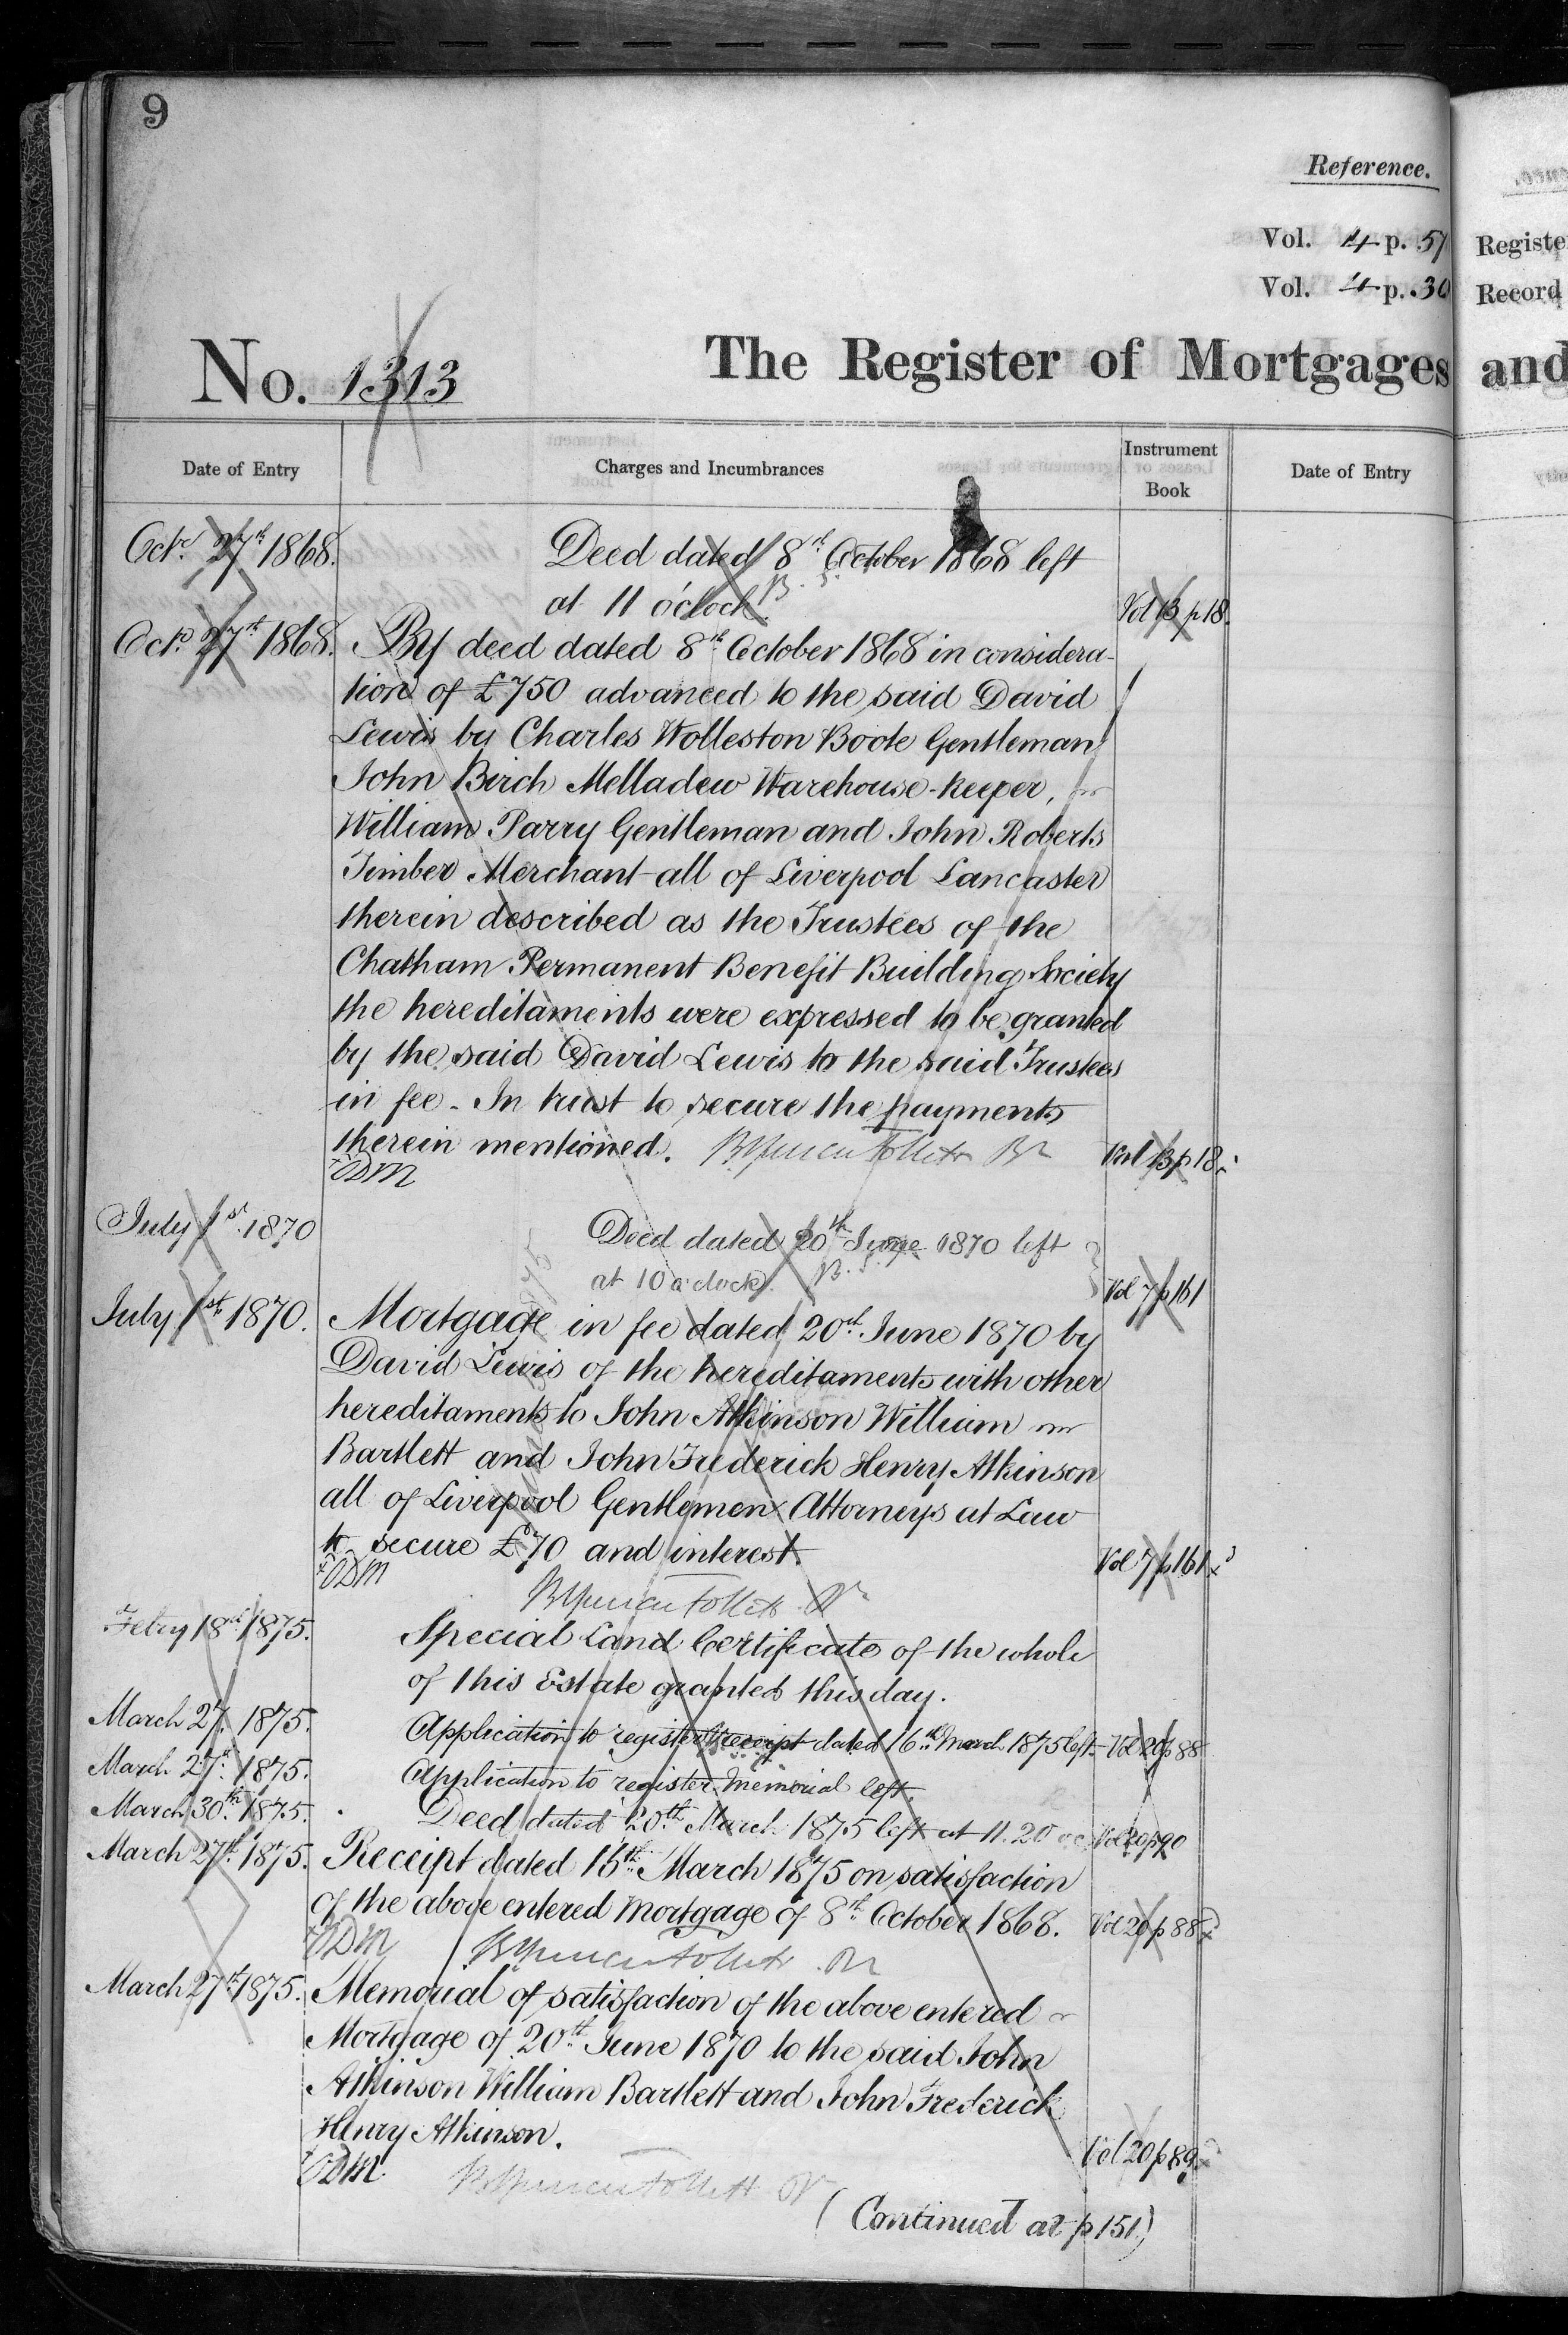 9
Reference.
Vol. 4 p. 57
Vol. 4 p. 30
Registe
Record
No. 1313
The Register of Mortgages and
Date of Entry
Charges and Incumbrances
Instrument Book
Date of Entry
Octr. 27th 1868. Deed dated 8th October 1868 left
at 11 o'clock. B. S. Vol 13 p 18.
Octr. 27th 1868. By deed dated 8th October 1868 in considera-
tion of £750 advanced to the said David
Lewis by Charles Wolleston Boote Gentleman
John Birch Melladew Warehouse-keeper,
William Parry Gentleman and John Roberts
Timber Merchant all of Liverpool Lancaster
therein described as the Trustees of the
Chatham Permanent Benefit Building Society
the hereditaments were expressed to be granted
by the said David Lewis to the said Trustees
in fee. In trust to secure the payments
therein mentioned. Vol 13 p 18.
ODM
July 1st 1870 Deed dated 20th June 1870 left
at 10 o'clock. B. S. Vol 7 p 161
July 1st 1870. Mortgage in fee dated 20th June 1870 by
David Lewis of the hereditaments with other
hereditaments to John Atkinson William
Bartlett and John Frederick Henry Atkinson
all of Liverpool Gentlemen Attorneys at Law
to secure £70 and interest. Vol 7 p 161
ODM
Febry 18th 1875. Special Land Certificate of the whole
of this Estate granted this day.
March 27. 1875. Application to register receipt dated 16th March 1875 left Vol 20 p 88
March 27th 1875. Application to register Memorial left.
March 30th 1875. Deed dated 20th March 1875 left at 11.20 Vol 20 p 90
March 27th 1875. Receipt dated 16th March 1875 on satisfaction
of the above entered Mortgage of 8th October 1868. Vol 20 p 88
ODM
March 27th 1875. Memorial of satisfaction of the above entered
Mortgage of 20th June 1870 to the said John
Atkinson William Bartlett and John Frederick
Henry Atkinson. Vol 20 p 89
ODM.
(Continued at p 151)